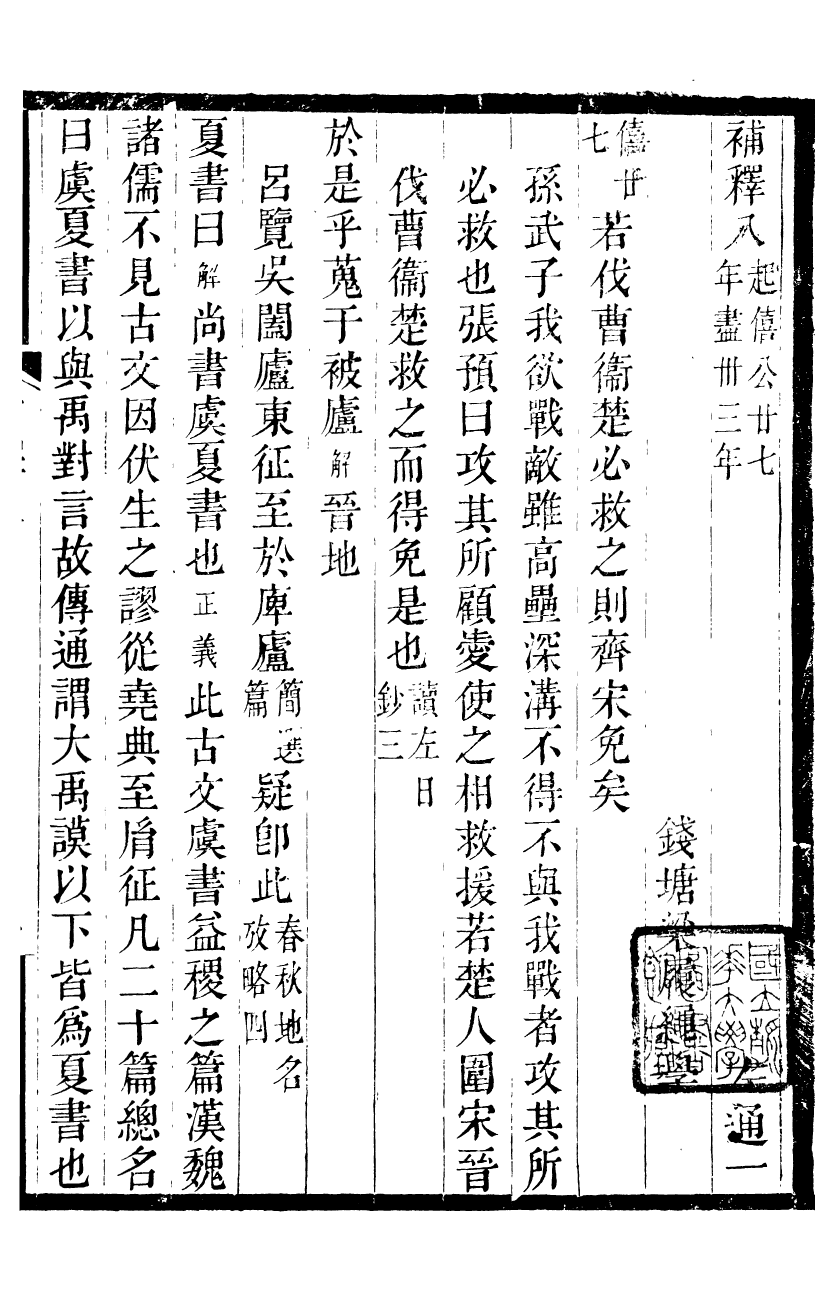 補釋八起僖公廿七年盡卅三年 左通一
錢塘梁履繩學
僖廿七若伐曹衞楚必救之則齊宋免矣
孫武子我欲戰敵雖高壘深溝不得不與我戰者攻其所
必救也張預曰攻其所顧愛使之相救援若楚人圍宋晉
伐曹衞楚救之而得免是也讀左日鈔三
於是乎蒐于被廬解晉地
呂覽吳闔廬東征至於庳廬簡選篇疑卽此春秋地名攷略四
夏書曰解尚書虞夏書也正義此古文虞書益稷之篇漢魏
諸儒不見古文因伏生之謬從堯典至胤征凡二十篇總名
曰虞夏書以與禹對言故傳通謂大禹謨以下皆爲夏書也